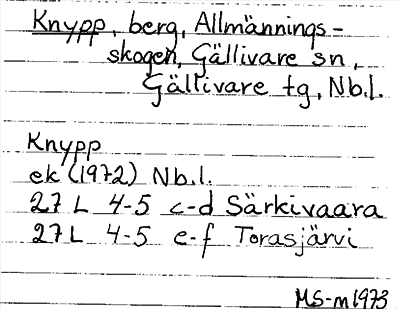 Knypp, berg, Allmännings-
skogen, Gällivare sn,
Gällivare tg, Nb.l.
Knypp
ek (1972) Nb.l.
27 L 4-5 c-d Särkivaara
27 L 4-5 e-f Torasjärvi
MS-m 1973